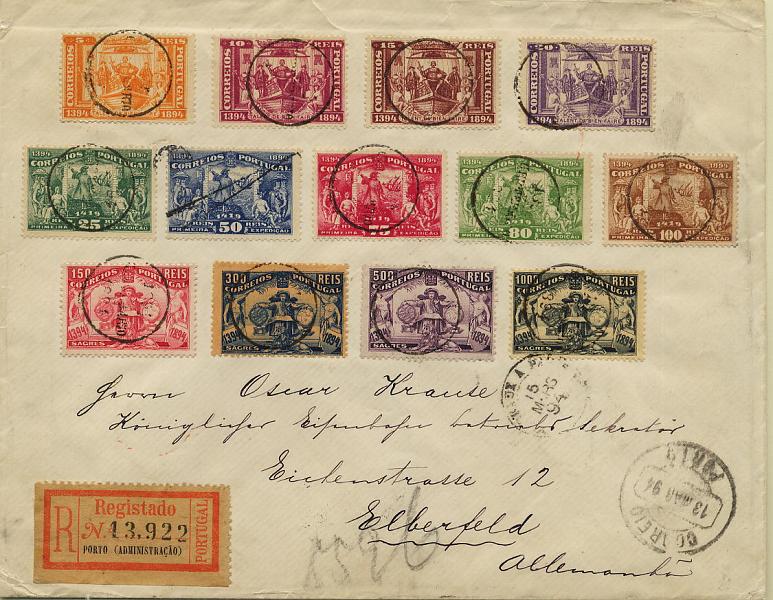 5 REIS CORREIOS PORTUGAL 1394 1894
10 REIS CORREIOS PORTUGAL 1394 1894
15 REIS CORREIOS PORTUGAL 1394 1894
20 REIS CORREIOS PORTUGAL 1394 1894
1394 1894 CORREIOS PORTUGAL 1419 REIS 25 REIS PRIMEIRA EXPEDIÇÃO
1394 1894 CORREIOS PORTUGAL 1419 REIS 50 REIS PRIMEIRA EXPEDIÇÃO
1394 1894 CORREIOS PORTUGAL 1419 REIS 75 REIS PRIMEIRA EXPEDIÇÃO
1394 1894 CORREIOS PORTUGAL 1419 REIS 80 REIS PRIMEIRA EXPEDIÇÃO
1394 1894 CORREIOS PORTUGAL 1419 REIS 100 REIS PRIMEIRA EXPEDIÇÃO
150 REIS CORREIOS PORTUGAL 1394 1894 SAGRES
300 REIS CORREIOS PORTUGAL 1394 1894 SAGRES
500 REIS CORREIOS PORTUGAL 1394 1894 SAGRES
1000 REIS CORREIOS PORTUGAL 1394 1894 SAGRES
15 MARS 94
Herrn Oscar Krause
Königlicher Eisenbahn betriebs Sekretär
Eichenstrasse 12
Elberfeld
Allemanha
R
Registado
N. 13,922
PORTO (ADMINISTRAÇÃO)
PORTUGAL
CORREIO
13 MAR 94
PORTO